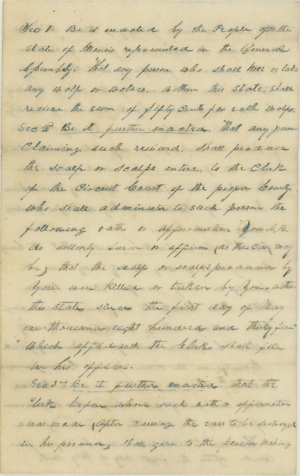 Sec 1. Be it enacted by the People of the
State of Illinois represented in the General
Assembly That any person who shall kill or take
any wolf or wolves within this State shall
receive the sum of fifty cents for each wolf.
Sec 2d Be it further enacted That any person
Claiming such reward, shall produce
the scalp or scalps entire, to the Clerk
of the Circuit Court of the proper County
who shall administer to such person the
following oath or affirmation You A.B.
do solemnly swear or affirm (as the case may
be, that the scalp or scalps produced by
you was killed or taken by you within
this State since the first day of May
one thousand eight hundred and thirty
Which affidavit the Clerk shall file
in his office.
Sec 3d Be it further enacted that the
Clerk before whom such oath or affirmation
was made after causing the ears to be destroyed
in his presence, shall give to the person having